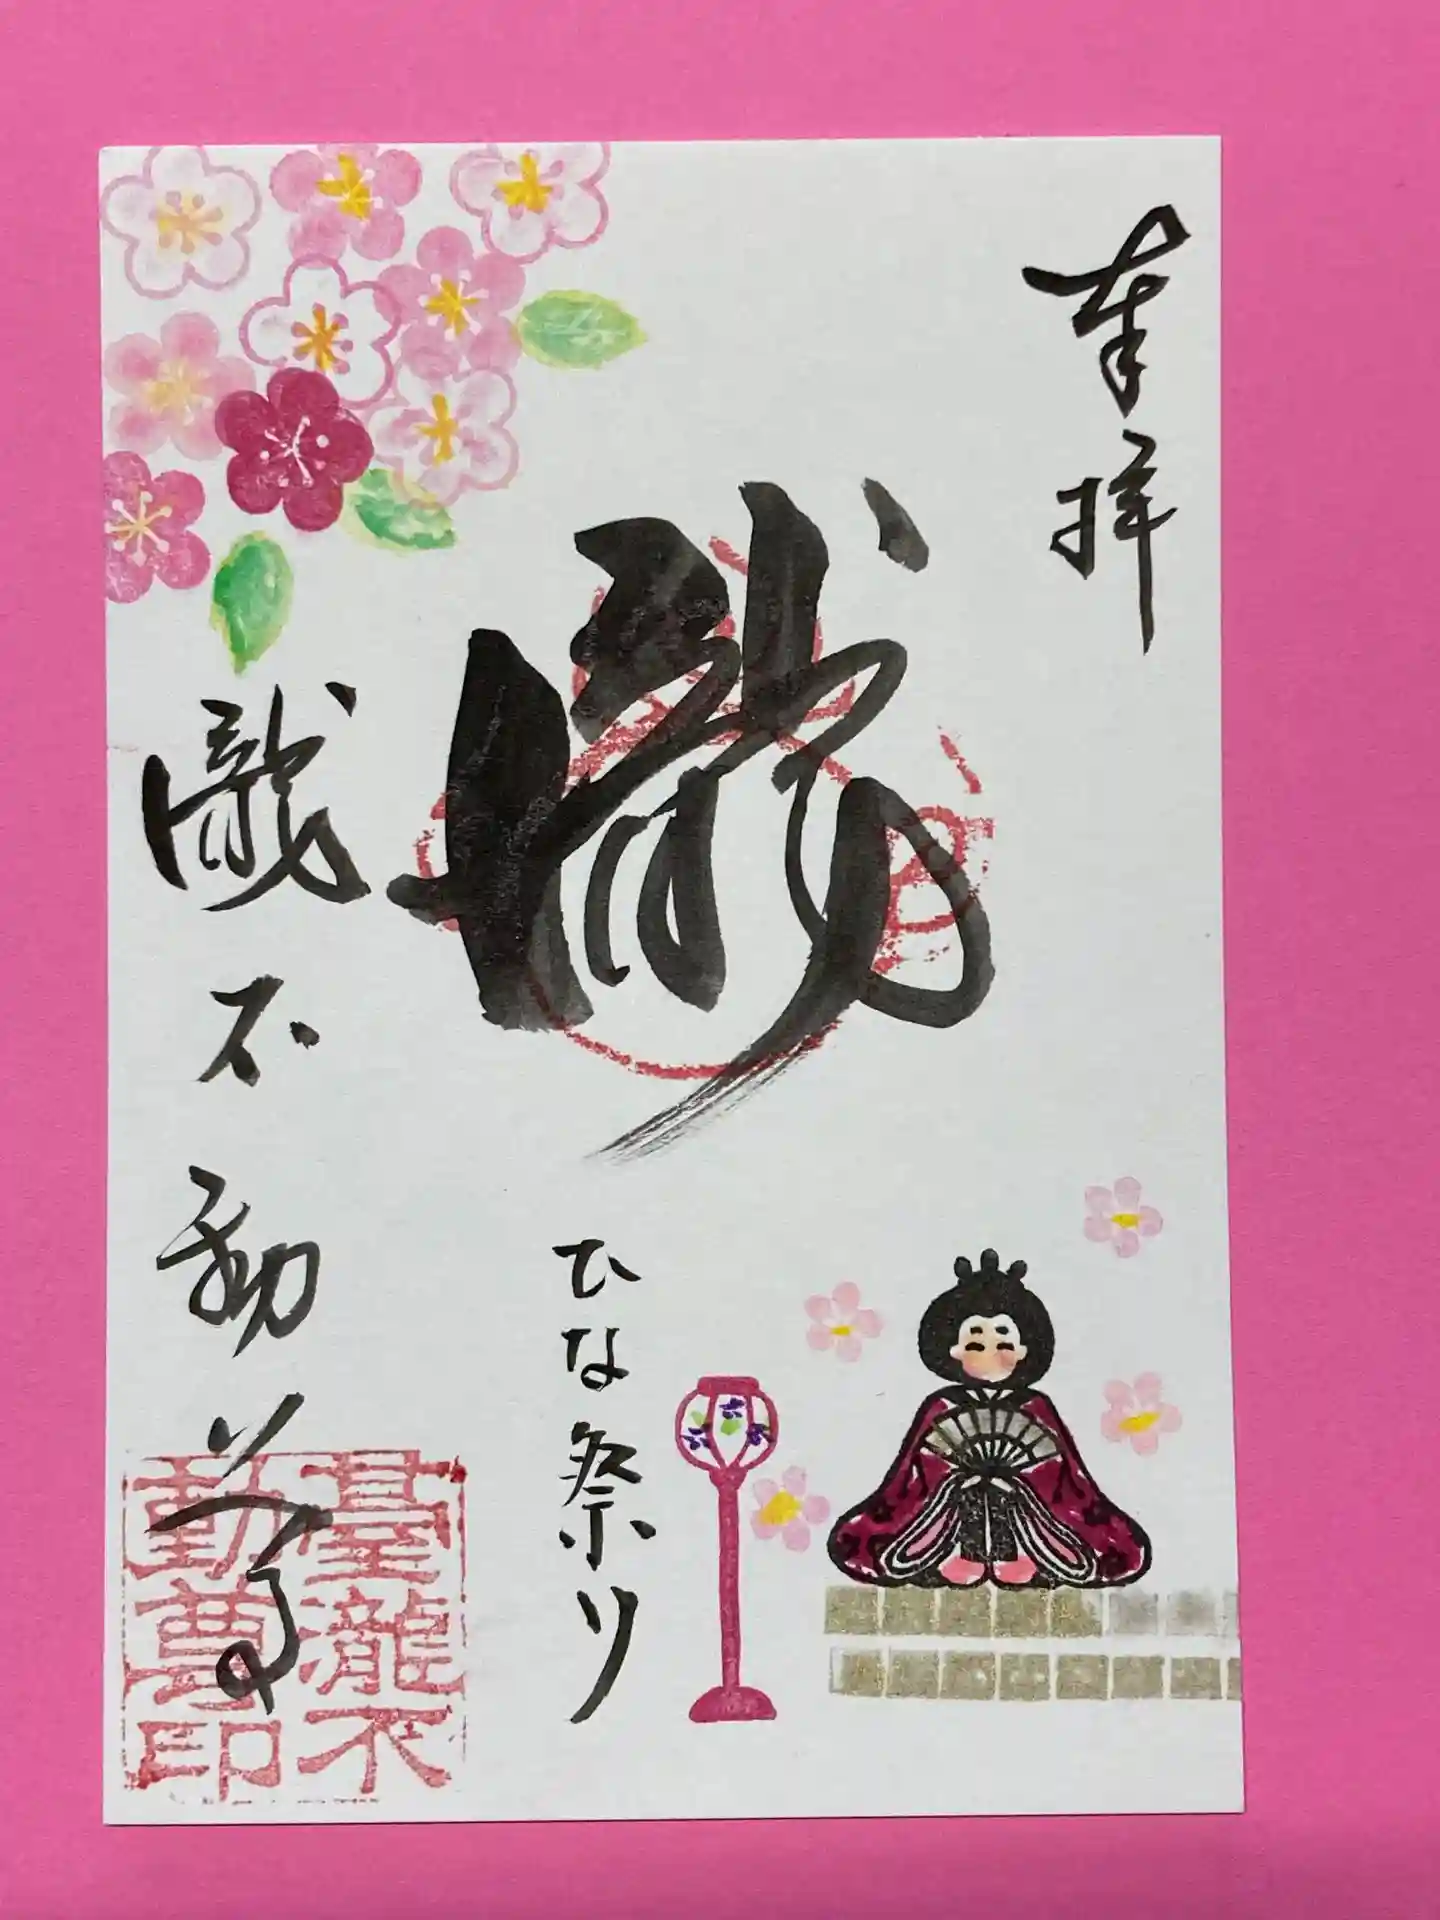 奉拝
瀧
ひな祭り
瀧不動尊
臺瀧不
動尊印